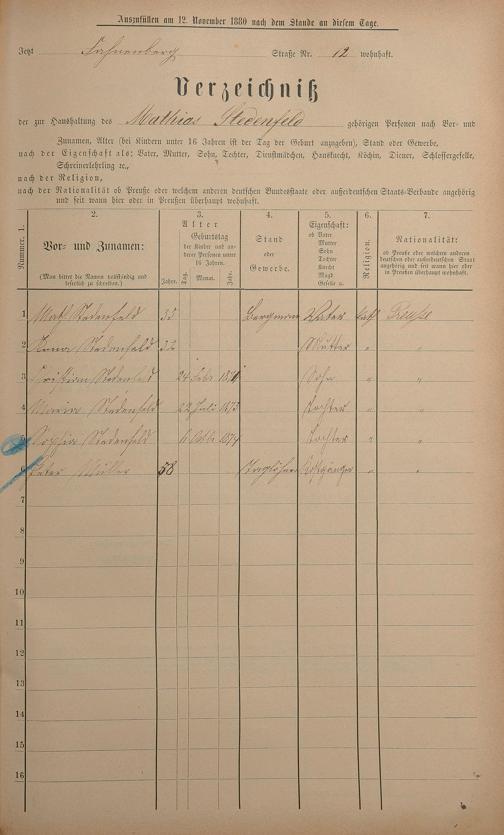 Auszufüllen am 12. November 1880 nach dem Stande an diesem Tage.
Jetzt Fahnenberg Straße Nr. 12 wohnhaft.
Verzeichniß
der zur Haushaltung des Mathias Stedenfeld gehörigen Personen nach Vor- und
Zunamen, Alter (bei Kindern unter 16 Jahren ist der Tag der Geburt anzugeben), Stand oder Gewerbe,
nach der Eigenschaft als: Vater, Mutter, Sohn, Tochter, Dienstmädchen, Hausknecht, Köchin, Diener, Schlossergeselle,
Schreinerlehrling ꝛc.,
nach der Religion,
nach der Nationalität ob Preuße oder welchem anderen deutschen Bundesstaate oder außerdeutschen Staats-Verbande angehörig
und seit wann hier oder in Preußen überhaupt wohnhaft.
Nummer. 1.
2.
Vor- und Zunamen:
(Man bittet die Namen vollständig und leserlich zu schreiben.)
3.
Alter
Geburtstag
der Kinder und anderer Personen unter 16 Jahren.
Jahre. Tag. Monat. Jahr.
4.
Stand
oder
Gewerbe.
5.
Eigenschaft:
ob Vater
Mutter
Sohn
Tochter
Knecht
Magd
Geselle u.
6.
Religion.
7.
Nationalität:
ob Preuße oder welchem anderen deutschen oder außerdeutschen Staat angehörig und seit wann hier oder in Preußen überhaupt wohnhaft.
1 Math Stedenfeld 35 Bergmann Vater kath Preuße
2 Anna Stedenfeld 32 Mutter " "
3 Christian Stedenfeld 24 Febr Sohn " "
4 Maria Stedenfeld 22 Juli 1873 Tochter " "
5 Sophia Stedenfeld 6 Octbr 1874 Tochter " "
6 Peter Müller 58 Taglöhner Kostgänger " "
7
8
9
10
11
12
13
14
15
16